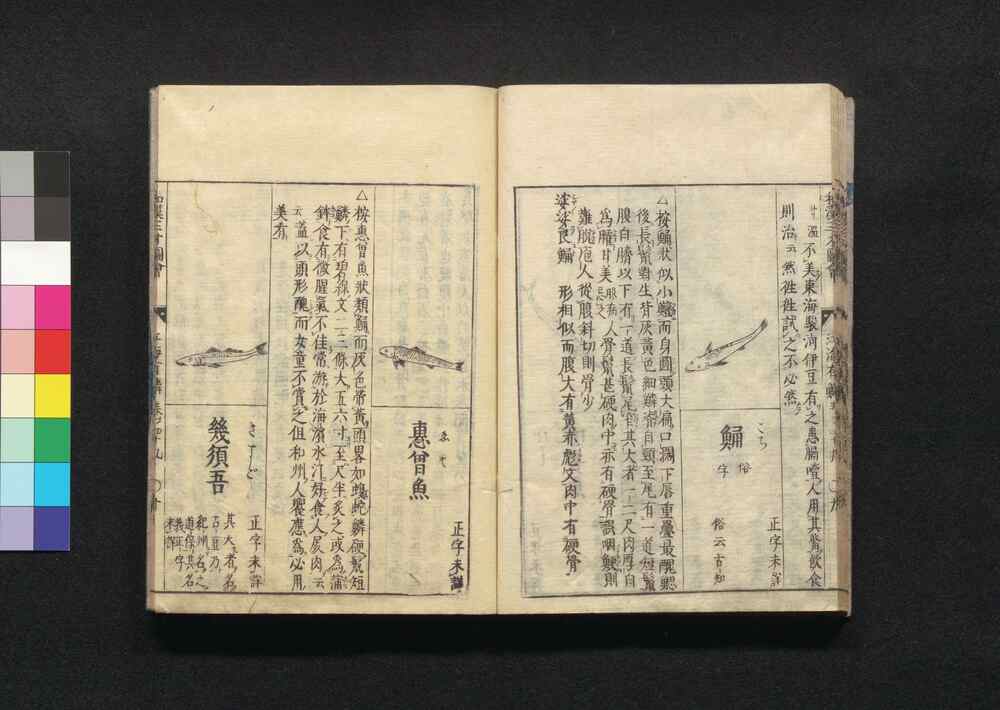 不美東海駿洲伊豆有之患膈噎人用其觜飲食
則治云然徃徃試之不必然
こち
鯒
俗字
正字未詳
俗云古知
△按鯒狀似小鱧而身圓頭大扁口闊下唇重疊最醜
後長鬣對生背灰黃色細鱗脊自頸至尾有一道短鬣
腹白臍以下有一道長鬣尾其大者一二尺肉厚白
爲膾甘美人骨鬣甚硬肉中亦有硬骨誤咽鯁則
難脫庖人從腹斜切則骨少
婆娑良鯒 形相似而腹大有黃赤彪文肉中有硬骨
ゑそ
惠曾魚
正字未詳
△按惠曾魚狀類鯒而灰色帶黃頭畧如蝮蛇鱗硬鬣短
鱗下有碧線文二三條大五六寸至尺半炙之或爲蒲
鉾食有微腥氣不佳常游於海濱水汀好食人屍肉云
云蓋以頭形醜而女童不賞之但和州人饗應爲必用
美肴
きすご
幾須吾
正字未詳
其大者名
吉豆乃
紀州名之
道保其名
義正字
未詳